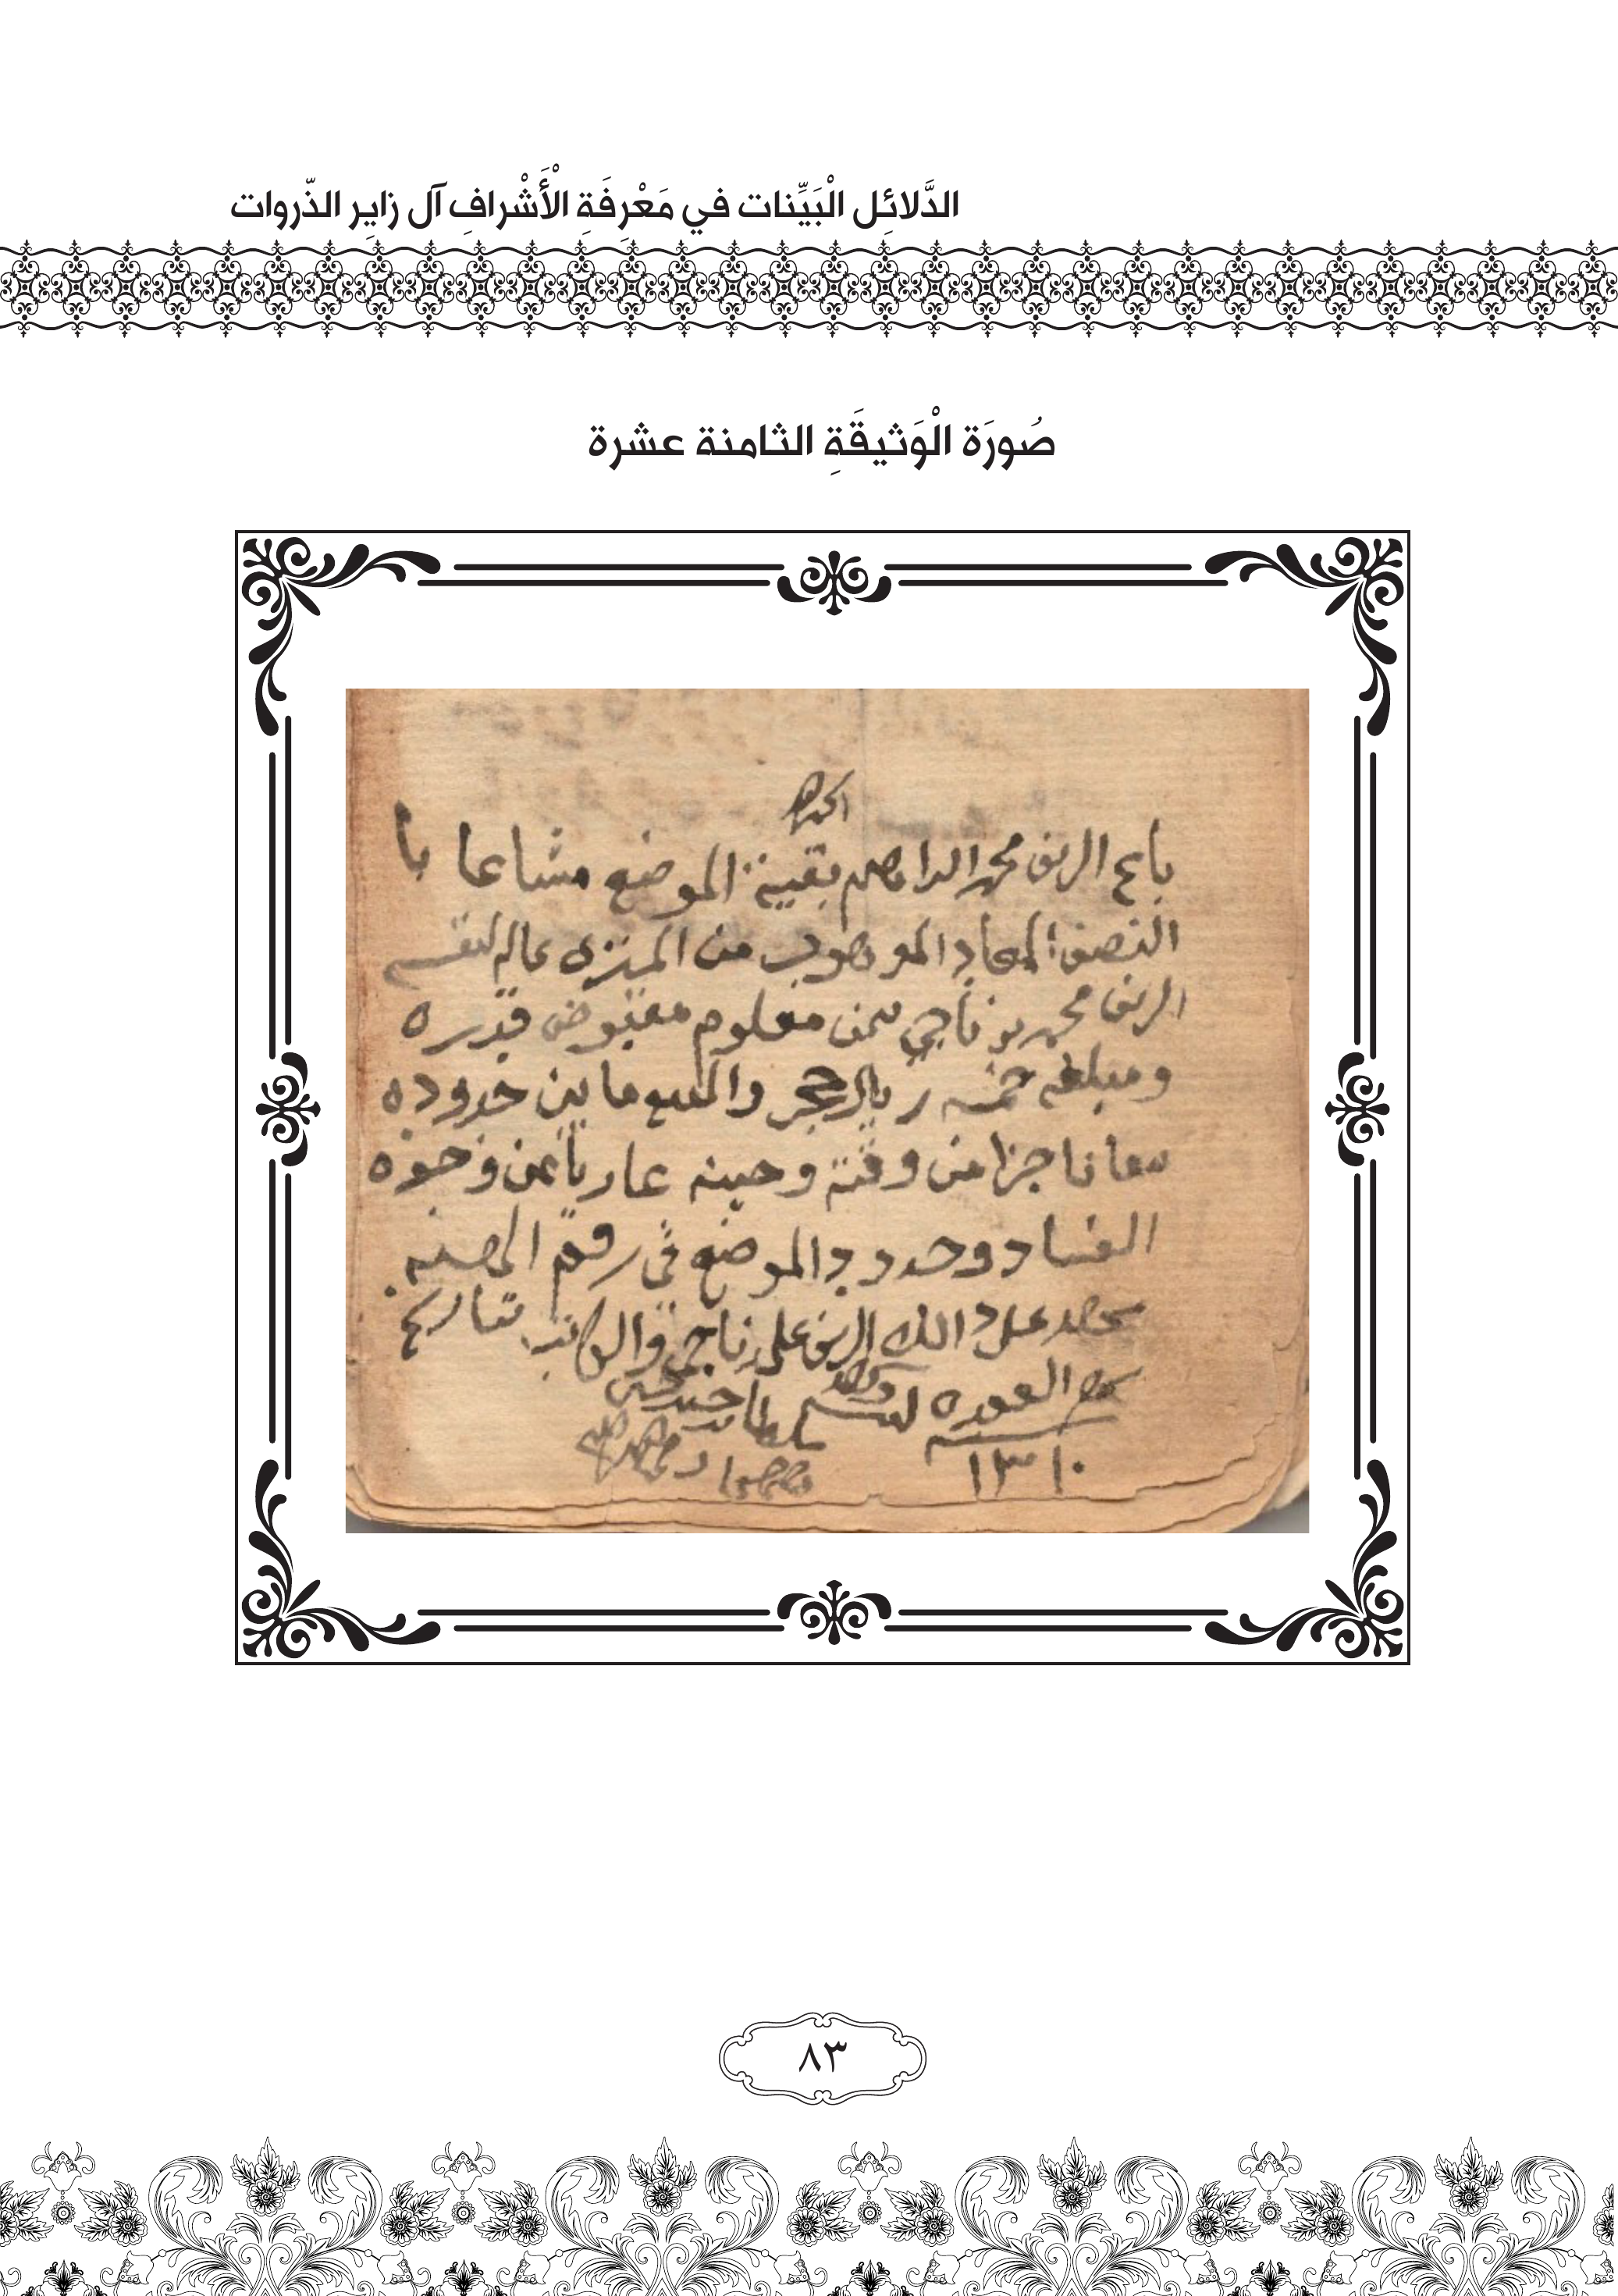 الدَّلائِل الْبَيِّنات في مَعْرِفَةِ الْأَشْرافِ آل زايِر الذّروات
صُورَة الْوَثيقَةِ الثامنة عشرة
الحمد لله
باع الشريف محمد بقية الموضع مشاعا با
النصف الموهوب من المشتري لنفسه
الشريف محمد بن ناجي بثمن معلوم مقبوض قدره
ومبلغه خمسة ريال حجر والمبيع ما بين حدوده
بيعا ناجزا من وقته وحينه عاريا عن وجوه
الفساد وحدود الموضع في رقم
شهد على ذلك الشريف علي بن ناجي والكاتب بتاريخ
شهر القعدة سنة
١٣١٠
٨٣